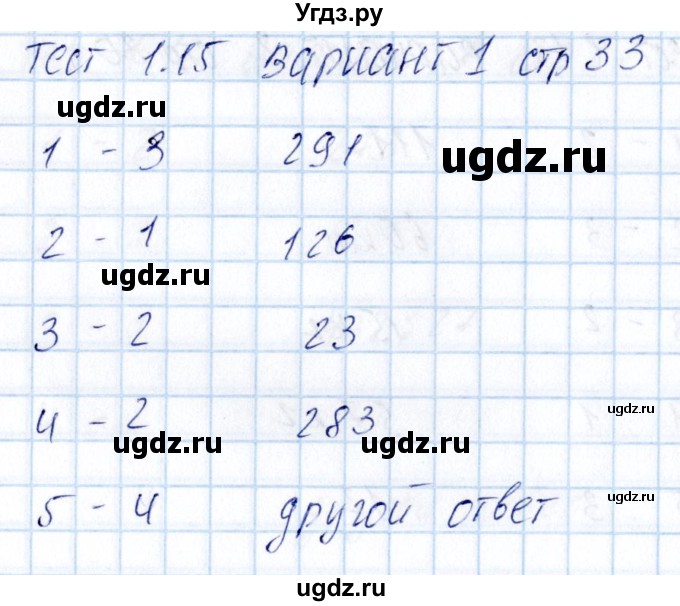 Угдз.ру
Тест 1.15 Вариант 1 стр 33
ugdz.ru
1 - 3 291
ugdz.ru
2 - 1 126
ugdz.ru
3 - 2 23
4 - 2 283
ugdz.ru
ugdz.ru
ugdz.ru
5 - 4 другой ответ
ugdz.ru
ugdz.ru